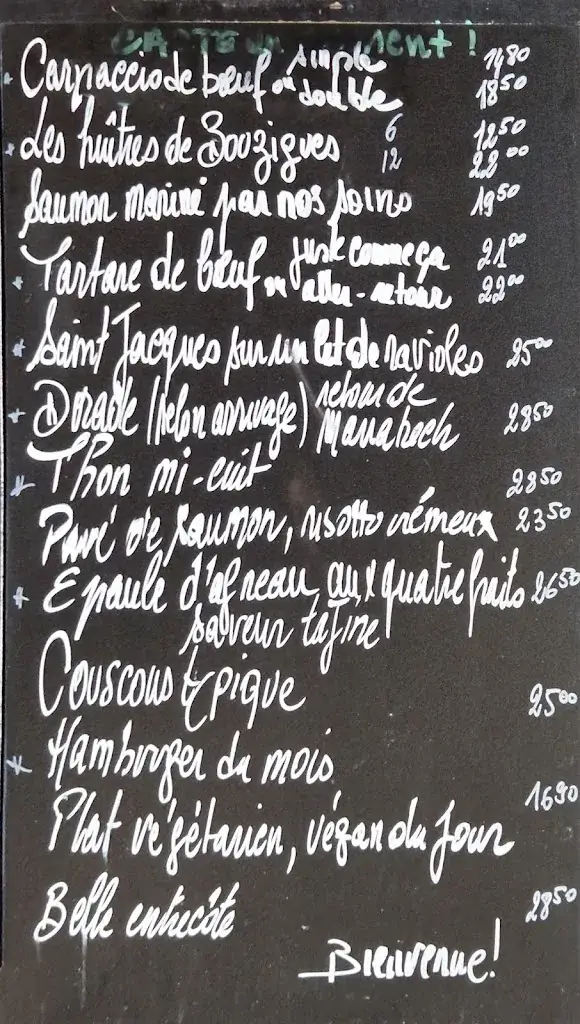 Carpaccio de bœuf ou simple 14,80
double 1850
Les huîtres de Bouzigues 6 1250
12 2200
Saumon mariné par nos soins 1950
Tartare de bœuf juste comme ça 2100
ou aller-retour 2200
Saint Jacques sur un lit de ravioles 2500
Dorade (selon arrivage) retour de Marrakech 2850
Thon mi-cuit 2850
Pavé de saumon, risotto crémeux 2350
Epaule d'agneau, aux quatre fruits 2650
saveur tajine
Couscous typique 2500
Hamburger du mois
1690
Plat végétarien, végan du jour
Belle entrecôte 2850
Bienvenue!